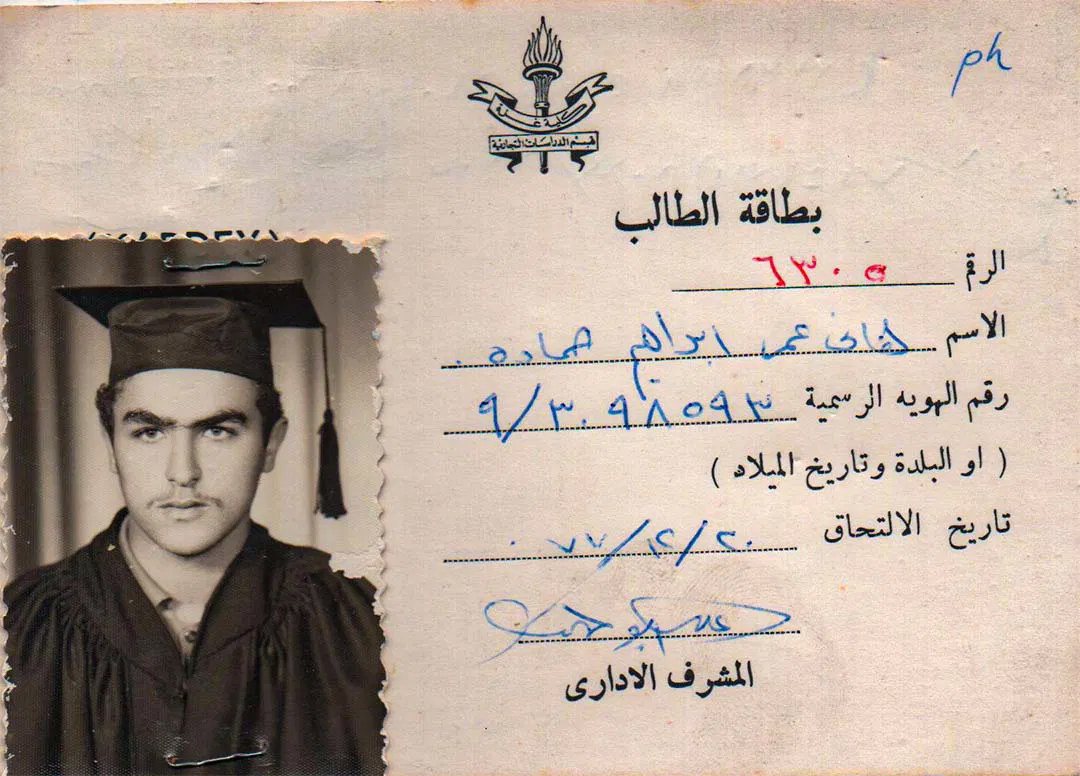 ph
كلية غزة
قسم الدراسات التجارية
بطاقة الطالب
الرقم ٦٣٠٥
الاسم عمر ابراهيم حماده
رقم الهويه الرسمية ٩/٣٠٩٨٥٩٣
( او البلدة وتاريخ الميلاد )
تاريخ الالتحاق ٧٧/١٢/٢٠
المشرف الادارى